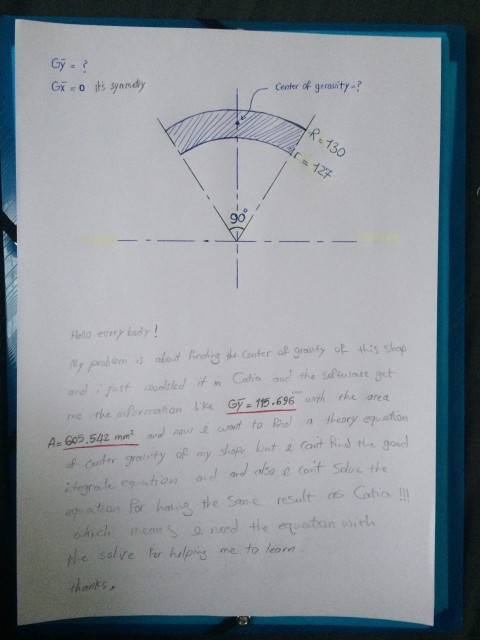 Gȳ = ?
Gx̄ = 0 its symmetry
Center of geravity=?
R=130
r=127
90°
Hello every body!
My problem is about finding the center of gravity of this shap
and i just modeled it in Catia and the software get
me the information like Gȳ = 115.696 mm with the area
A= 605.542 mm² and now i want to find a theory equation
of center gravity of my shape but i can't find the good
integrale equation and and also i can't solve the
equation for having the same result as Catia !!!
which means i need the equation with
the solve for helping me to learn.
thanks.